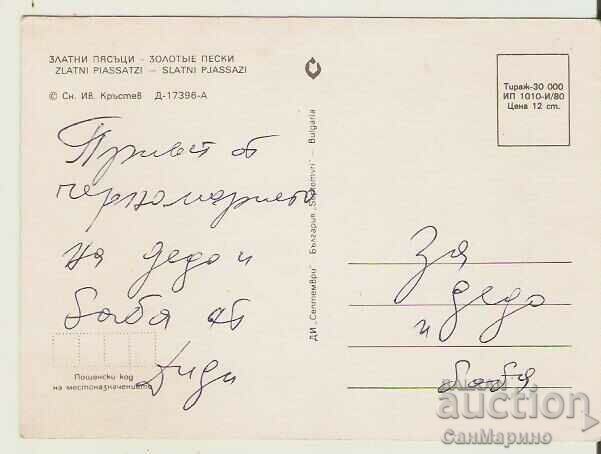 ЗЛАТНИ ПЯСЪЦИ - ЗОЛОТЫЕ ПЕСКИ
ZLATNI PIASSATZI — SLATNI PJASSAZI
© Сн. Ив. Кръстев Д-17396-А
Тираж-30 000
ИП 1010-И/80
Цена 12 ст.
Привет от
черноморието
на дедо и
баба от
Диди
Пощенски код
на местоназначението
ДИ „Септември" България „Septemvri" — Bulgaria
За
дедо
и
баба
auction
СанМарино